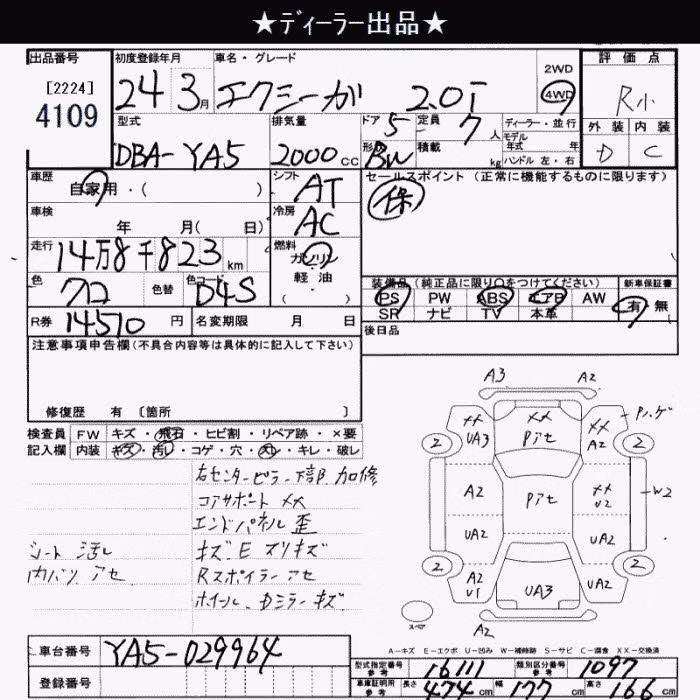 ★ディーラー出品★
出品番号
[2224]
4109
初度登録年月
24 3月
車名・グレード
エクシーガ 2.0i
2WD
4WD
評価点
R小
外装 内装
D C
型式
DBA-YA5
排気量
2000 cc
ドア 5
形状 BW
定員 7人
積載 kg
ディーラー・並行
モデル
年式 年
ハンドル 左・右
車歴
自家用・( )
シフト AT
車検
年 月( 日)
冷房 AC
走行
14万8千823 km
燃料
ガソリン
軽油
( )
色
クロ
色替
色コード
D4S
R券 14510 円
名変期限 月 日
セールスポイント (正常に機能するものに限ります)
保
装備品 (純正品に限り○をつけてください)
PS PW ABS エアB AW
SR ナビ TV 本革
新車保証書
有 無
後日品
注意事項申告欄(不具合内容等は具体的に記入して下さい)
修復歴 有 [箇所 ]
検査員
記入欄
FW キズ・飛石・ヒビ割・リペア跡・×要
内装 キズ・汚れ・コゲ・穴・スレ・キレ・破レ
右センターピラー下部 加修
コアサポート XX
エンドパネル 歪
キズE スリキズ
Rスポイラーアセ
ホイール、Dミラーキズ
シート 汚レ
内バリ アセ
A3 A2
XX UA3
XX Pアセ
XX A2
Pハゲ
2 2
A2
Pアセ
XX U2
W2
UA2
UA2
2 2
A2 U1
UA3
UA2
スペア
A2
A-キズ E-エクボ U-凹み W-補修跡 S-サビ C-腐食 XX-交換済
車台番号 YA5-029964
登録番号
型式指定番号
参考
16111
類別区分番号
参考
1097
車庫証明用
参考
長さ 474 cm 幅 177 cm 高さ 166 cm